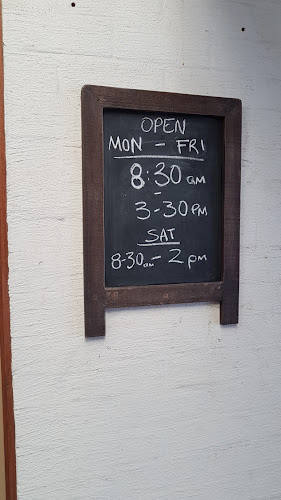 OPEN
MON - FRI
8:30 am
-
3-30 PM
SAT
8-30 am - 2 pm